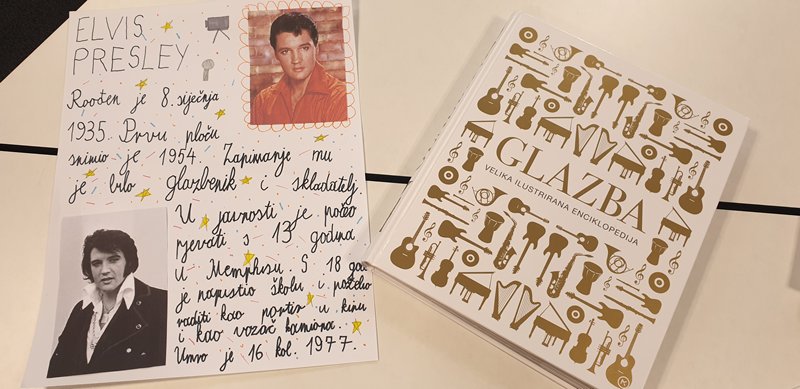 ELVIS
PRESLEY
Rođen je 8. siječnja
1935. Prvu ploču
snimio je 1954. Zanimanje mu
je bilo glazbenik i skladatelj.
U javnosti je počeo
pjevati s 13 godina
u Memphisu. S 18 god
je napustio školu i počeo
raditi kao portir u kinu
i kao vozač kamiona.
Umro je 16 kol. 1977.
GLAZBA
VELIKA ILUSTRIRANA ENCIKLOPEDIJA